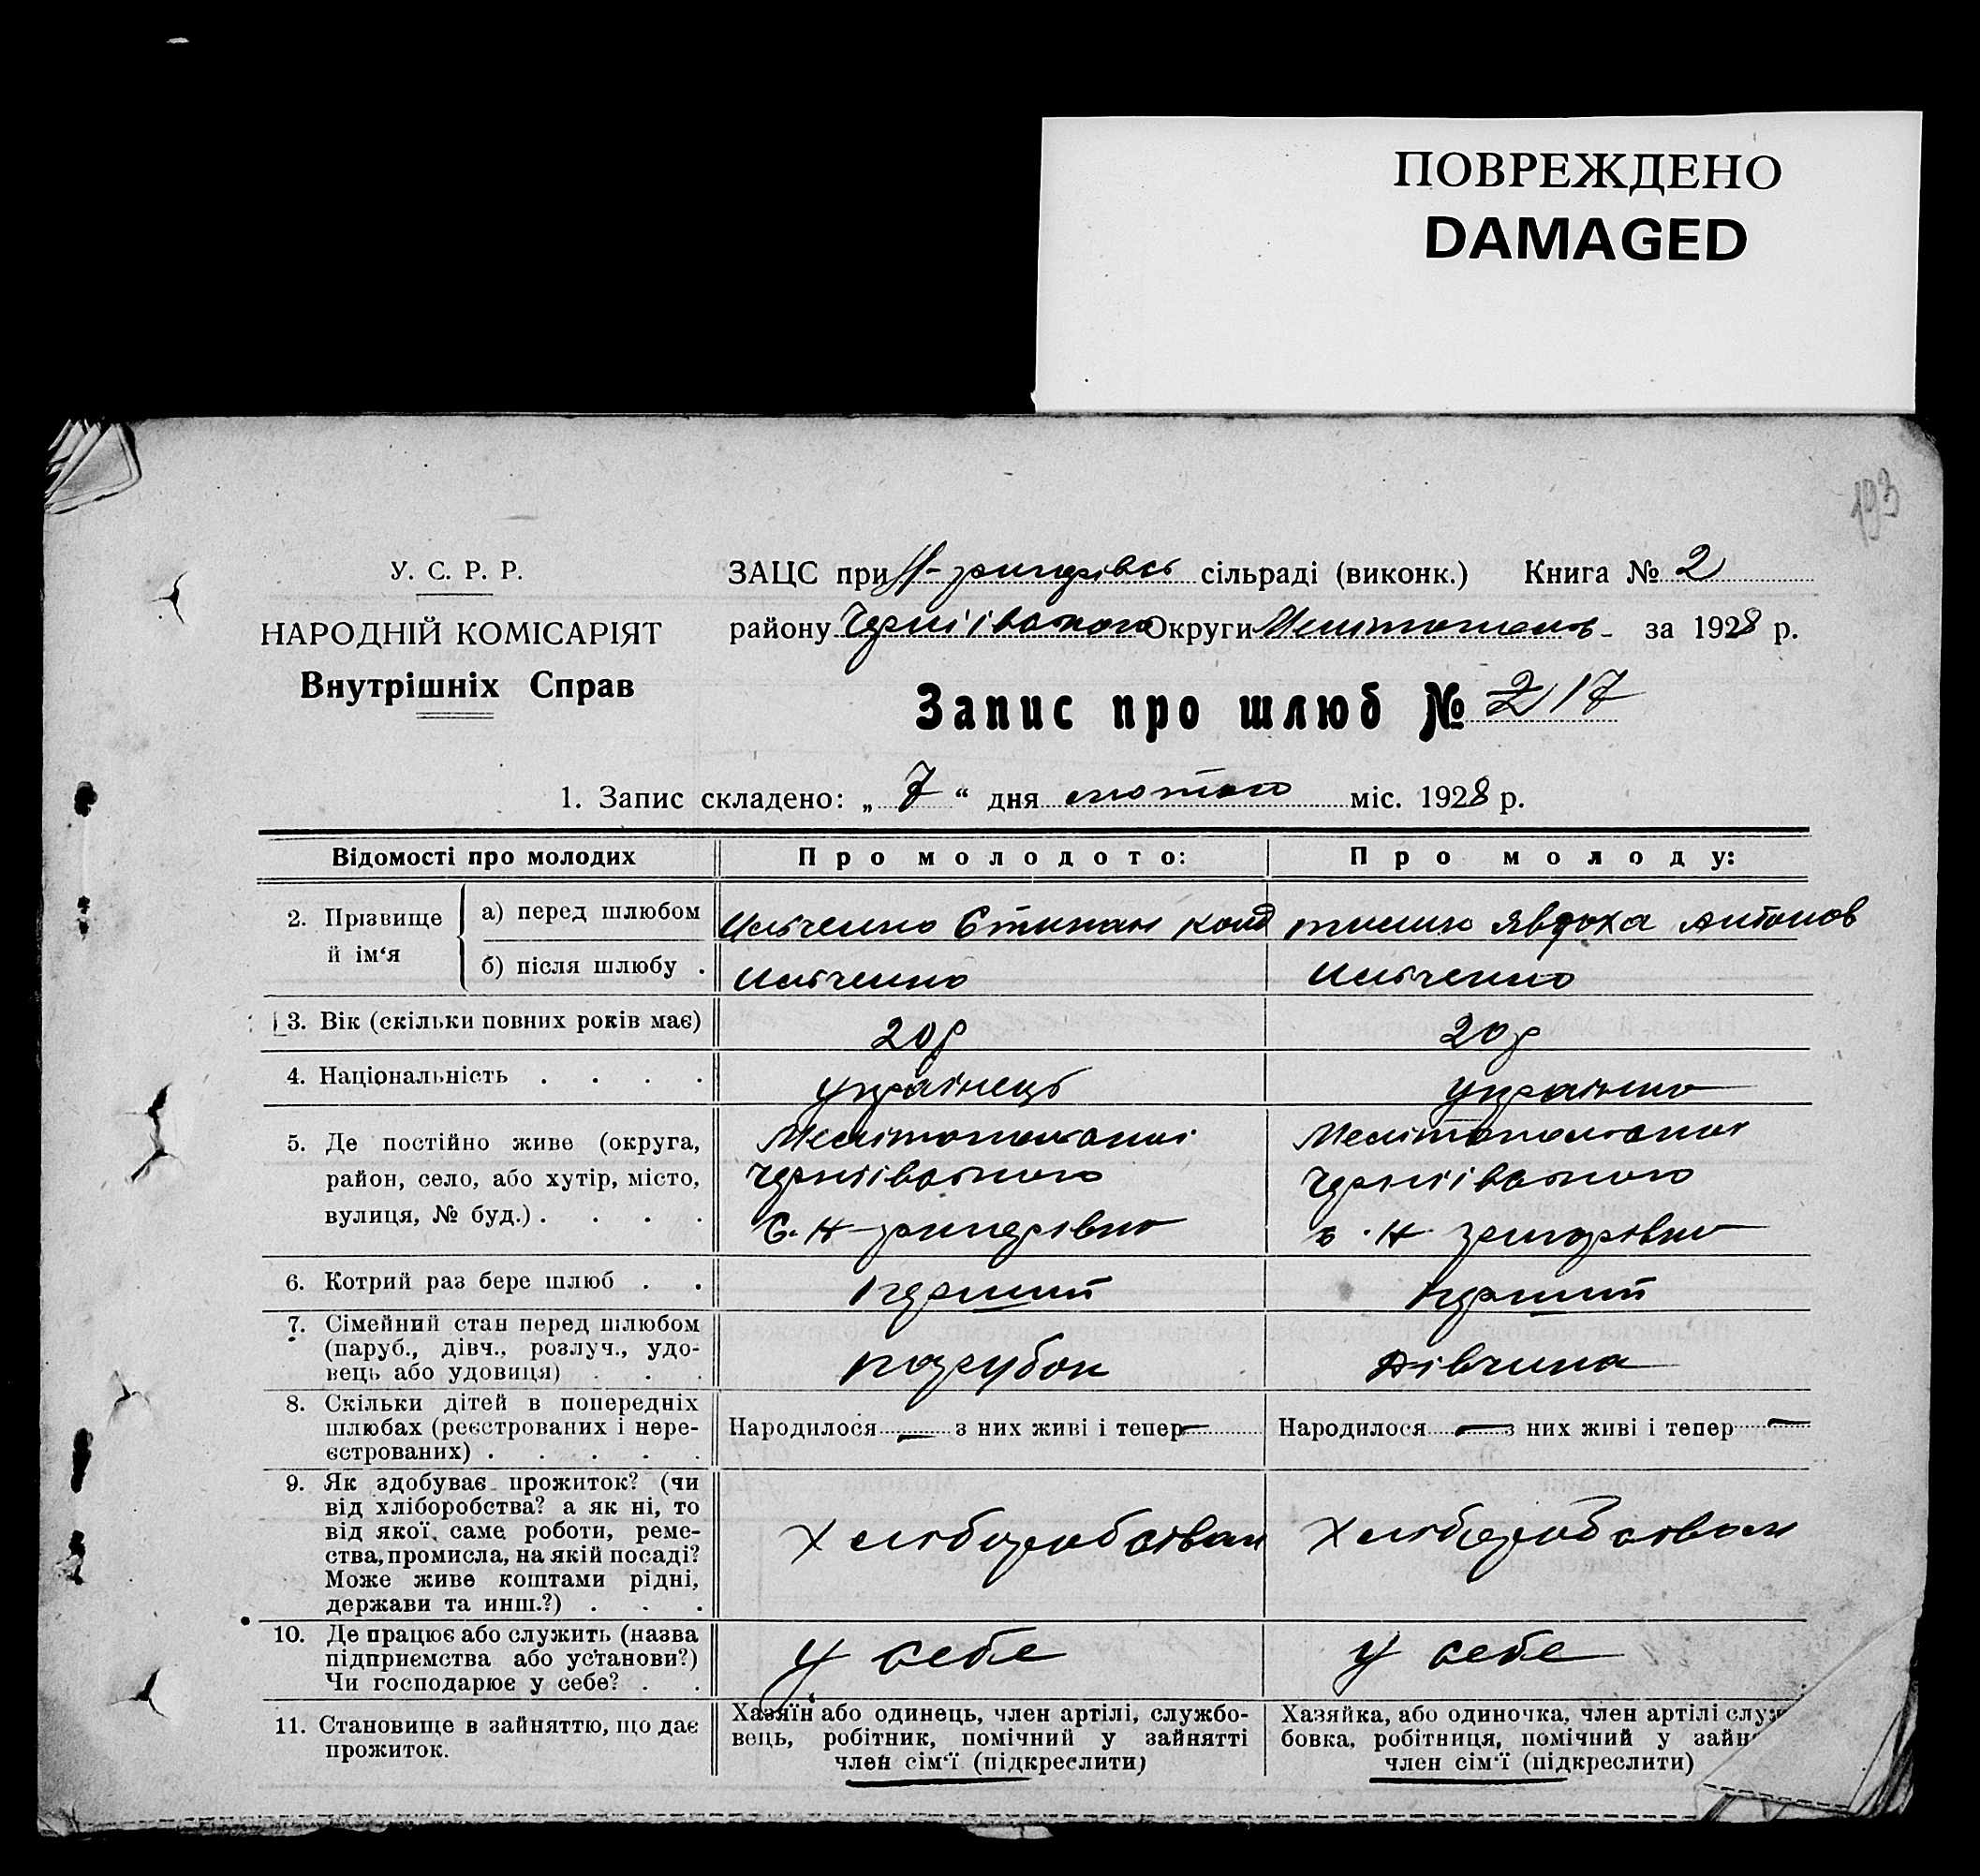 ПОВРЕЖДЕНО
DAMAGED
193
У. С. Р. Р.
НАРОДНІЙ КОМІСАРІЯТ
Внутрішніх Справ
ЗАЦС при сільраді (виконк.) Книга № 2
району Чернігівського Округи Мелітопольс за 1928 р.
Запис про шлюб № 217
1. Запис складено: „ 7 “ дня лютого міс. 1928 р.
Відомості про молодих
Про молодого:
Про молоду:
2. Прізвище й ім‘я
а) перед шлюбом
Ильченко Степан Явдоха Антонов
б) після шлюбу .
Ильченко
Ильченко
3. Вік (скільки повних років має)
20 р
20 р
4. Національність . . . .
українець
українка
5. Де постійно живе (округа,
район, село, або хутір, місто,
вулиця, № буд.) . . . .
Мелітопольської
Чернігівського
С. Н-григорівка
Мелітопольської
Чернігівського
с. Н григорівка
6. Котрий раз бере шлюб . .
перший
перший
7. Сімейний стан перед шлюбом
(паруб., дівч., розлуч., удо-
вець або удовиця) . . .
парубок
дівчина
8. Скільки дітей в попередніх
шлюбах (реєстрованих і нере-
єстрованих) . . . . .
Народилося — з них живі і тепер —
Народилося — з них живі і тепер —
9. Як здобуває прожиток? (чи
від хліборобства? а як ні, то
від якої саме роботи, реме-
ства, промисла, на якій посаді?
Може живе коштами рідні,
держави та инш.?) . . .
Хліборобством
Хліборобством
10. Де працює або служить (назва
підприємства або установи?)
Чи господарює у себе? . .
у себе
у себе
11. Становище в зайняттю, що дає
прожиток.
Хазяїн або одинець, член артілі, службо-
вець, робітник, помічний у зайнятті
член сім‘ї (підкреслити)
Хазяйка, або одиночка, член артілі служ
бовка, робітниця, помічний у зайн
член сім‘ї (підкреслити)